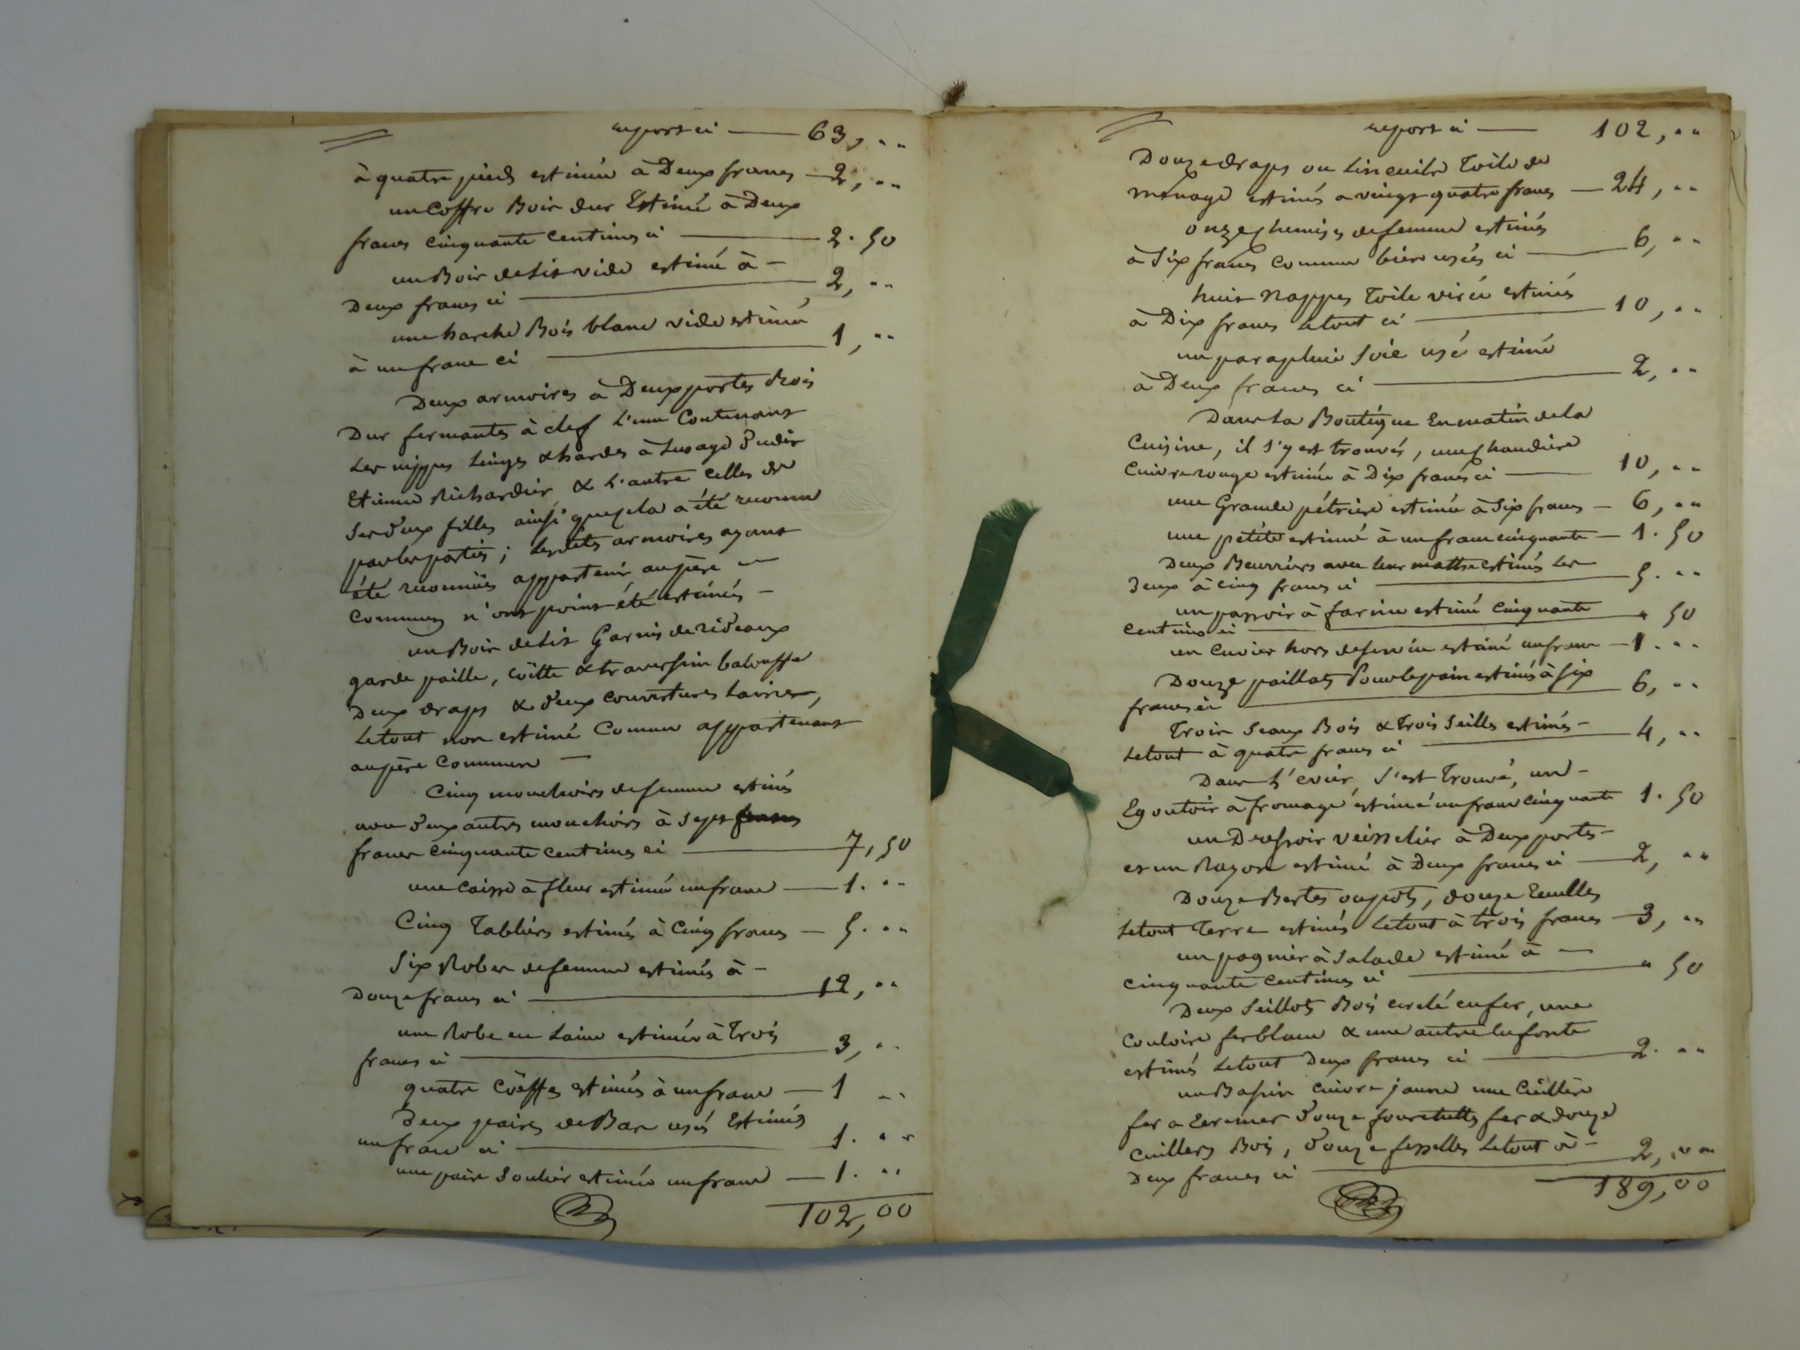 report ci — 63, "
à quatre pieds estimée à Deux francs — 2, "
un Coffre Bois dur Estimé à Deux
francs cinquante centimes ci — 2. 50
un Bois de lit vide estimé à —
Deux francs ci — 2, "
une harche Bois blanc vide estimée
à un franc ci — 1, "
Deux armoires à Deux portes Bois
Dur fermantes à clef l'une Contenant
les nippes linges & hardes à Lusage dudit
Etienne Richardier & l'autre celles de
ses deux filles ainsi que cela a été reconnu
par les parties ; lesdites armoires ayant
été reconnües appartenir au père —
commun n'ont point été estimées —
un Bois de lit Garni de rideaux
garde paille, coëtte & traversin balouffe
Deux draps & deux couvertures laine,
le tout non estimé Comme appartenant
au père Commun —
Cinq mouchoirs de femme estimés
avec deux autres mouchoirs à sept
francs cinquante centimes ci — 7, 50
une caisse à fleur estimée un franc — 1. "
Cinq Tabliers estimés à Cinq francs — 5. "
Six Robes de femme estimées à —
Douze francs ci — 12, "
une Robe en Laine estimée à Trois
francs ci — 3, "
quatre Coëffes estimées à un franc — 1 "
Deux paires de Bas usés Estimés
un franc ci — 1. "
une paire Soulier estimée un franc — 1. "
102,00
report ci — 102, "
Douze draps ou Linceuils Toile de
ménage estimés a vingt quatre francs — 24, "
onze chemises de femme estimés
à Six francs comme bien usées ci — 6, "
huit Nappes Toile virée estimés
à Dix francs le tout ci — 10, "
un parapluie Soie usé estimé
à Deux francs ci — 2, "
Dans La Boutique En matin de la
Cuisine, il s'y est trouvés, une chaudière
Cuivre rouge estimée à Dix francs ci — 10, "
une Grande pétrière estimée à Six francs — 6, "
une pétite estimé à un franc cinquante — 1. 50
Deux Beurriers avec leur matte estimés les
deux à cinq francs ci — 5. "
un passoir à farine estimé cinquante
centimes ci — " 50
un cuvier hors de service estimé un franc — 1. "
Douze paillats Pour le pain estimés à six
francs ci — 6, "
Trois Seaux Bois & Trois Seilles estimés —
le tout à quatre francs ci — 4, "
Dans L'evier, s'est Trouvé, un —
Egoutoir à fromage estimé un franc cinquante 1. 50
un Dressoir veisselier à Deux portes —
et un Rayon estimé à Deux francs ci — 2, "
Douze Bertes ou pots, douze Ecuelles
le tout Terre estimés Le tout à trois francs — 3, "
un pagnier à Salade estimé à —
cinquante centimes ci — " 50
Deux Seillots Bois cerclé en fer, une
Couloire fer blanc & une autre en fonte
estimés Le tout Deux francs ci — 2. "
un Bassin cuivre jaune une Cuillère
fer a Ecremer douze fourchettes fer & douze
Cuillers Bois, douze fesselles Le tout à —
Deux francs ci — 2, "
189,00